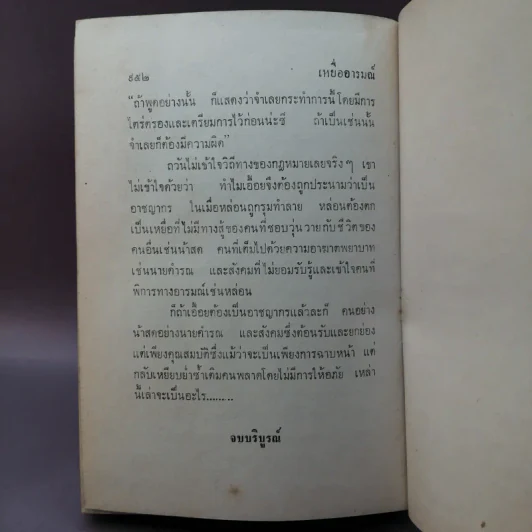 ๙๕๒ เหยื่ออารมณ์
“ถ้าพูดอย่างนั้น ก็แสดงว่าจำเลยกระทำการนี้โดยมีการ
ไตร่ตรองและเตรียมการไว้ก่อนน่ะซี ถ้าเป็นเช่นนั้น
จำเลยก็ต้องมีความผิด”
ถวันไม่เข้าใจวิถีทางของกฎหมายเลยจริง ๆ เขา
ไม่เข้าใจด้วยว่า ทำไมเอื้อยจึงต้องถูกประนามว่าเป็น
อาชญากร ในเมื่อหล่อนถูกรุมทำลาย หล่อนต้องตก
เป็นเหยื่อที่ไม่มีทางสู้ของคนที่ชอบวุ่นวายกับชีวิตของ
คนอื่นเช่นน้าสด คนที่เต็มไปด้วยความอาฆาตพยาบาท
เช่นนายดำรณ และสังคมที่ไม่ยอมรับรู้และเข้าใจคนที่
พิการทางอารมณ์เช่นหล่อน
ก็ถ้าเอื้อยต้องเป็นอาชญากรแล้วละก็ คนอย่าง
น้าสดอย่างนายดำรณ และสังคมซึ่งต้อนรับและยกย่อง
แต่เพียงคุณสมบัติซึ่งแม้ว่าจะเป็นเพียงการฉาบหน้า แต่
กลับเหยียบย่ำซ้ำเติมคนพลาดโดยไม่มีการให้อภัย เหล่า
นี้เล่าจะเป็นอะไร.......
จบบริบูรณ์